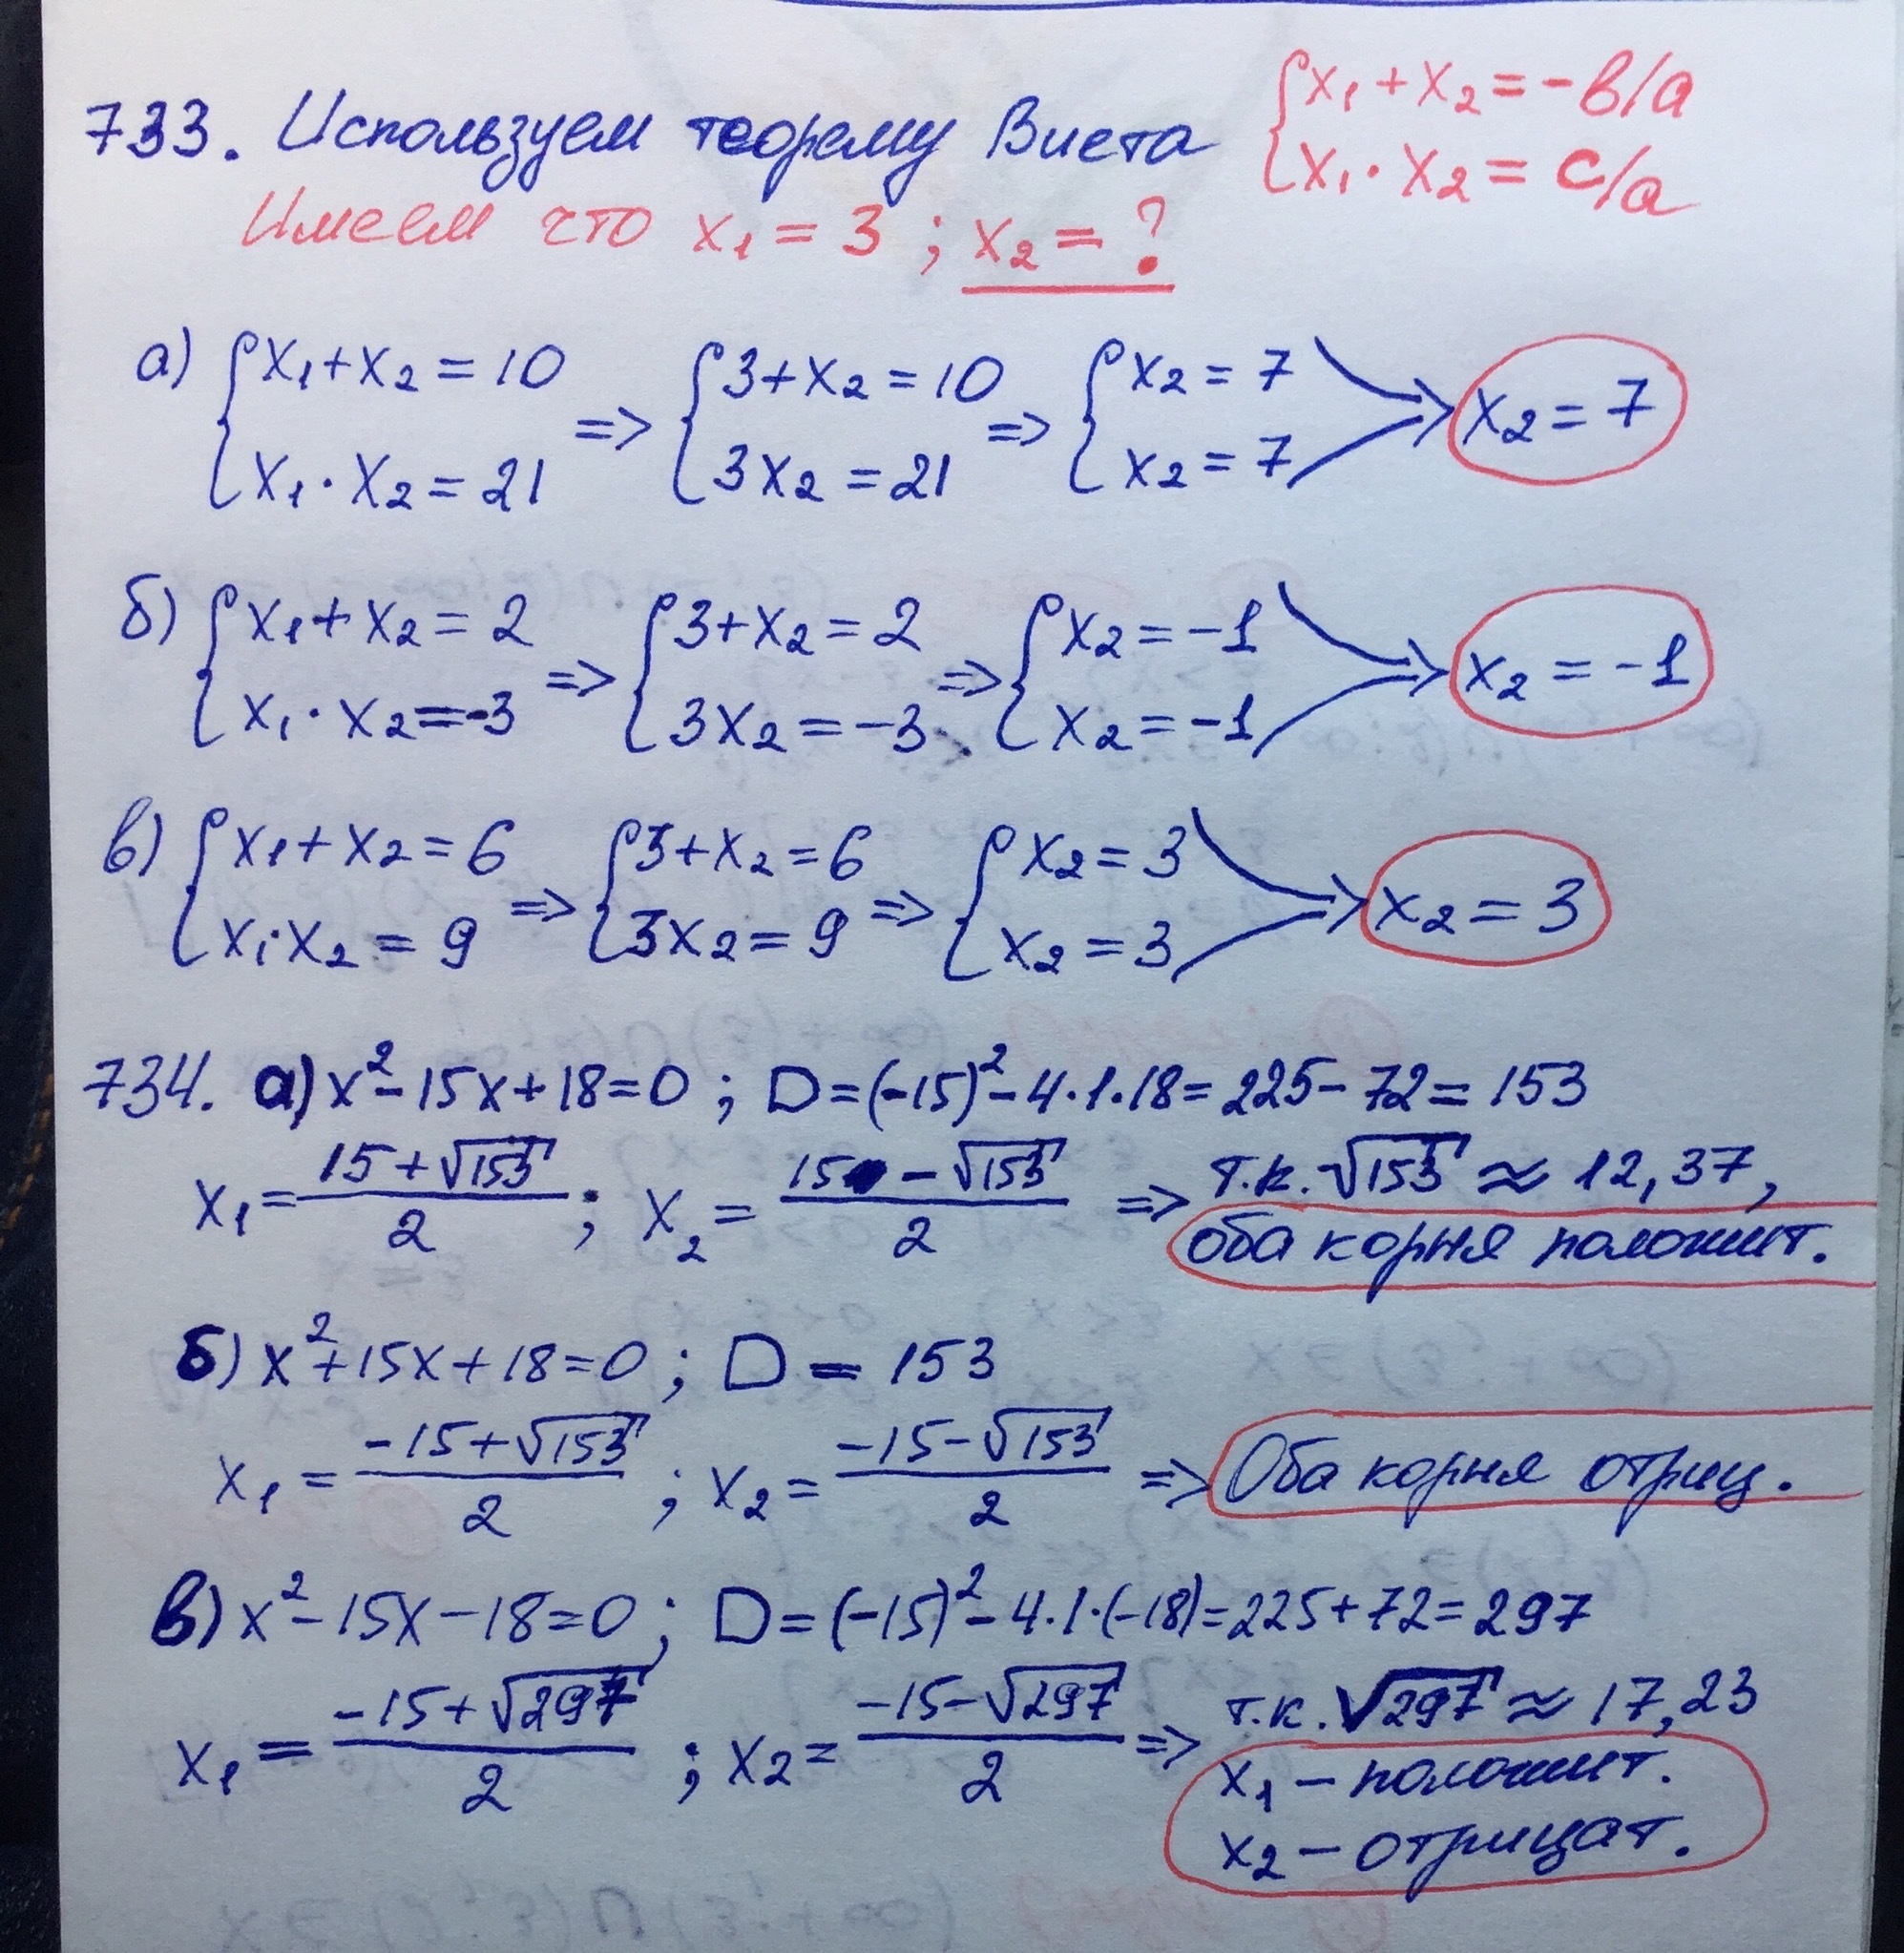 733. Используем теорему Виета { x₁ + x₂ = -в/а
x₁ · x₂ = с/а
Имеем что x₁ = 3 ; x₂ = ?
а) { x₁ + x₂ = 10 => { 3 + x₂ = 10 => { x₂ = 7 > x₂ = 7
x₁ · x₂ = 21 3x₂ = 21 x₂ = 7
б) { x₁ + x₂ = 2 => { 3 + x₂ = 2 => { x₂ = -1 > x₂ = -1
x₁ · x₂ = -3 3x₂ = -3 x₂ = -1
в) { x₁ + x₂ = 6 => { 3 + x₂ = 6 => { x₂ = 3 > x₂ = 3
x₁ · x₂ = 9 3x₂ = 9 x₂ = 3
734. а) x² - 15x + 18 = 0 ; D = (-15)² - 4·1·18 = 225 - 72 = 153
x₁ = (15 + √153)/2 ; x₂ = (15 - √153)/2 => т.к. √153 ≈ 12,37,
оба корня положит.
б) x² + 15x + 18 = 0 ; D = 153
x₁ = (-15 + √153)/2 ; x₂ = (-15 - √153)/2 => Оба корня отриц.
в) x² - 15x - 18 = 0 ; D = (-15)² - 4·1·(-18) = 225 + 72 = 297
x₁ = (-15 + √297)/2 ; x₂ = (-15 - √297)/2 => т.к. √297 ≈ 17,23
x₁ – положит.
x₂ – отрицат.